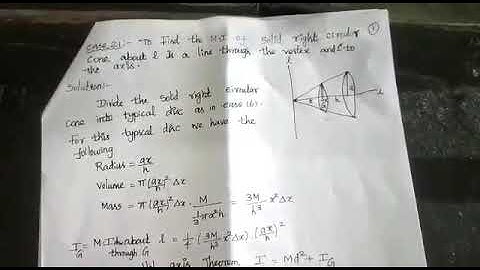 ①
Case 21:- To Find the M.I of solid right circular
Cone about l is a line through the vertex and ⊥ to
the axis.
Solution:-
Divide the solid right circular
cone into typical disc as in case (6).
For this typical disc we have the
following
Radius = ax/h
Volume = π(ax/h)² Δx
Mass = π(ax/h)² Δx · M / (1/3 πa²h) = 3M/h³ x² Δx
I_G = M.I about l through G = 1/2 (3M/h³ x² Δx) · (ax/h)²
axis Theorem I = Md² + I_G